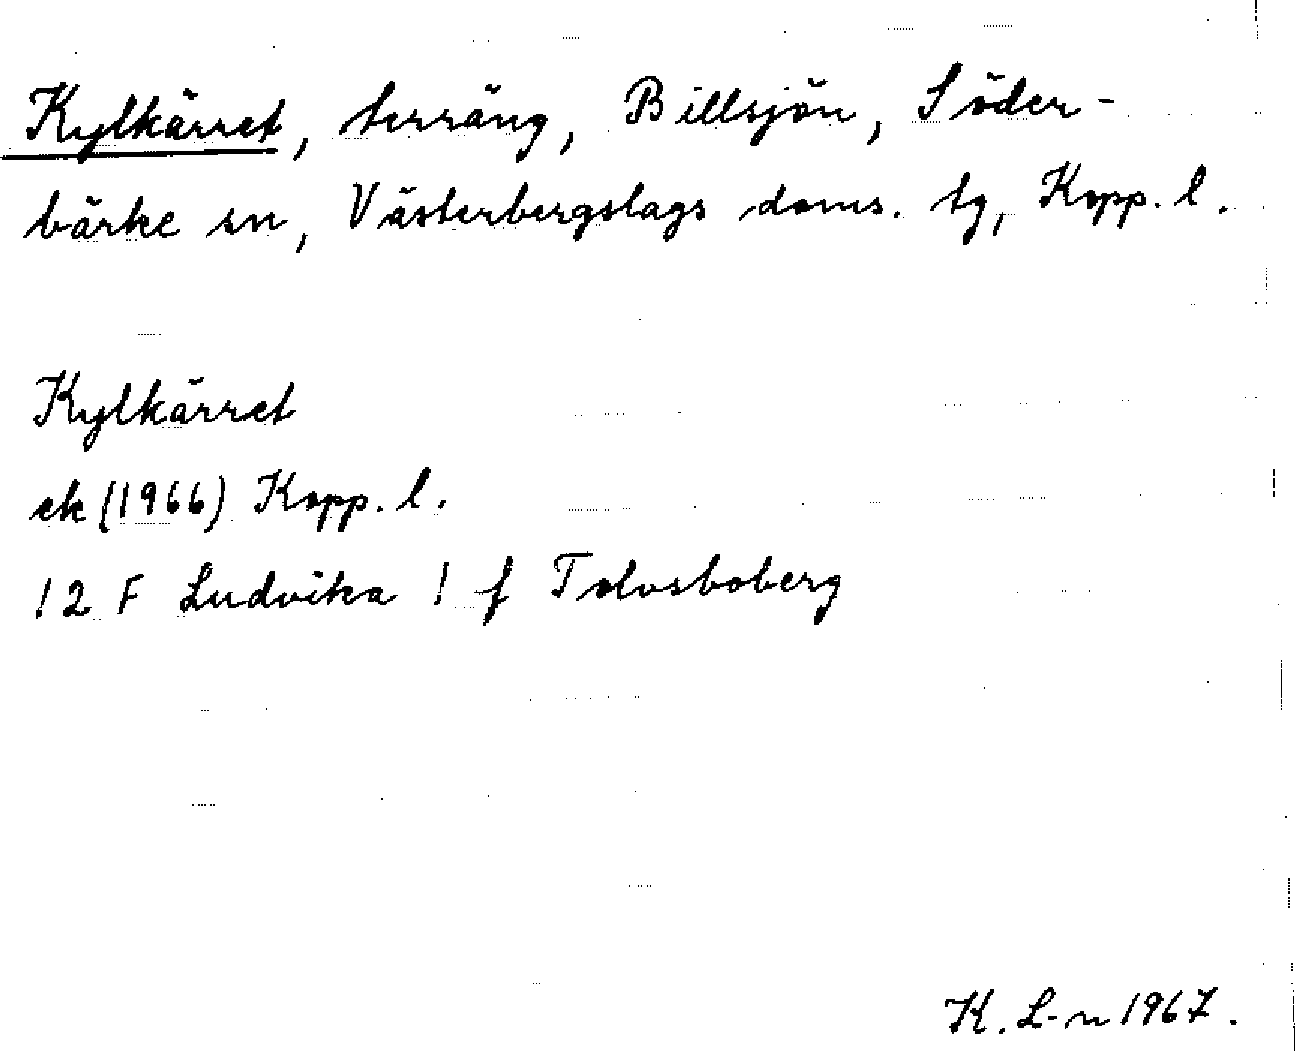 Kylkärret, terräng, Billsjön, Söder-
bärke sn, Västerbergslags doms. tg, Kopp. l.
Kylkärret
ek (1966) Kopp. l.
12 F Ludvika 1 f Tolvsboberg
K. L-n 1967.